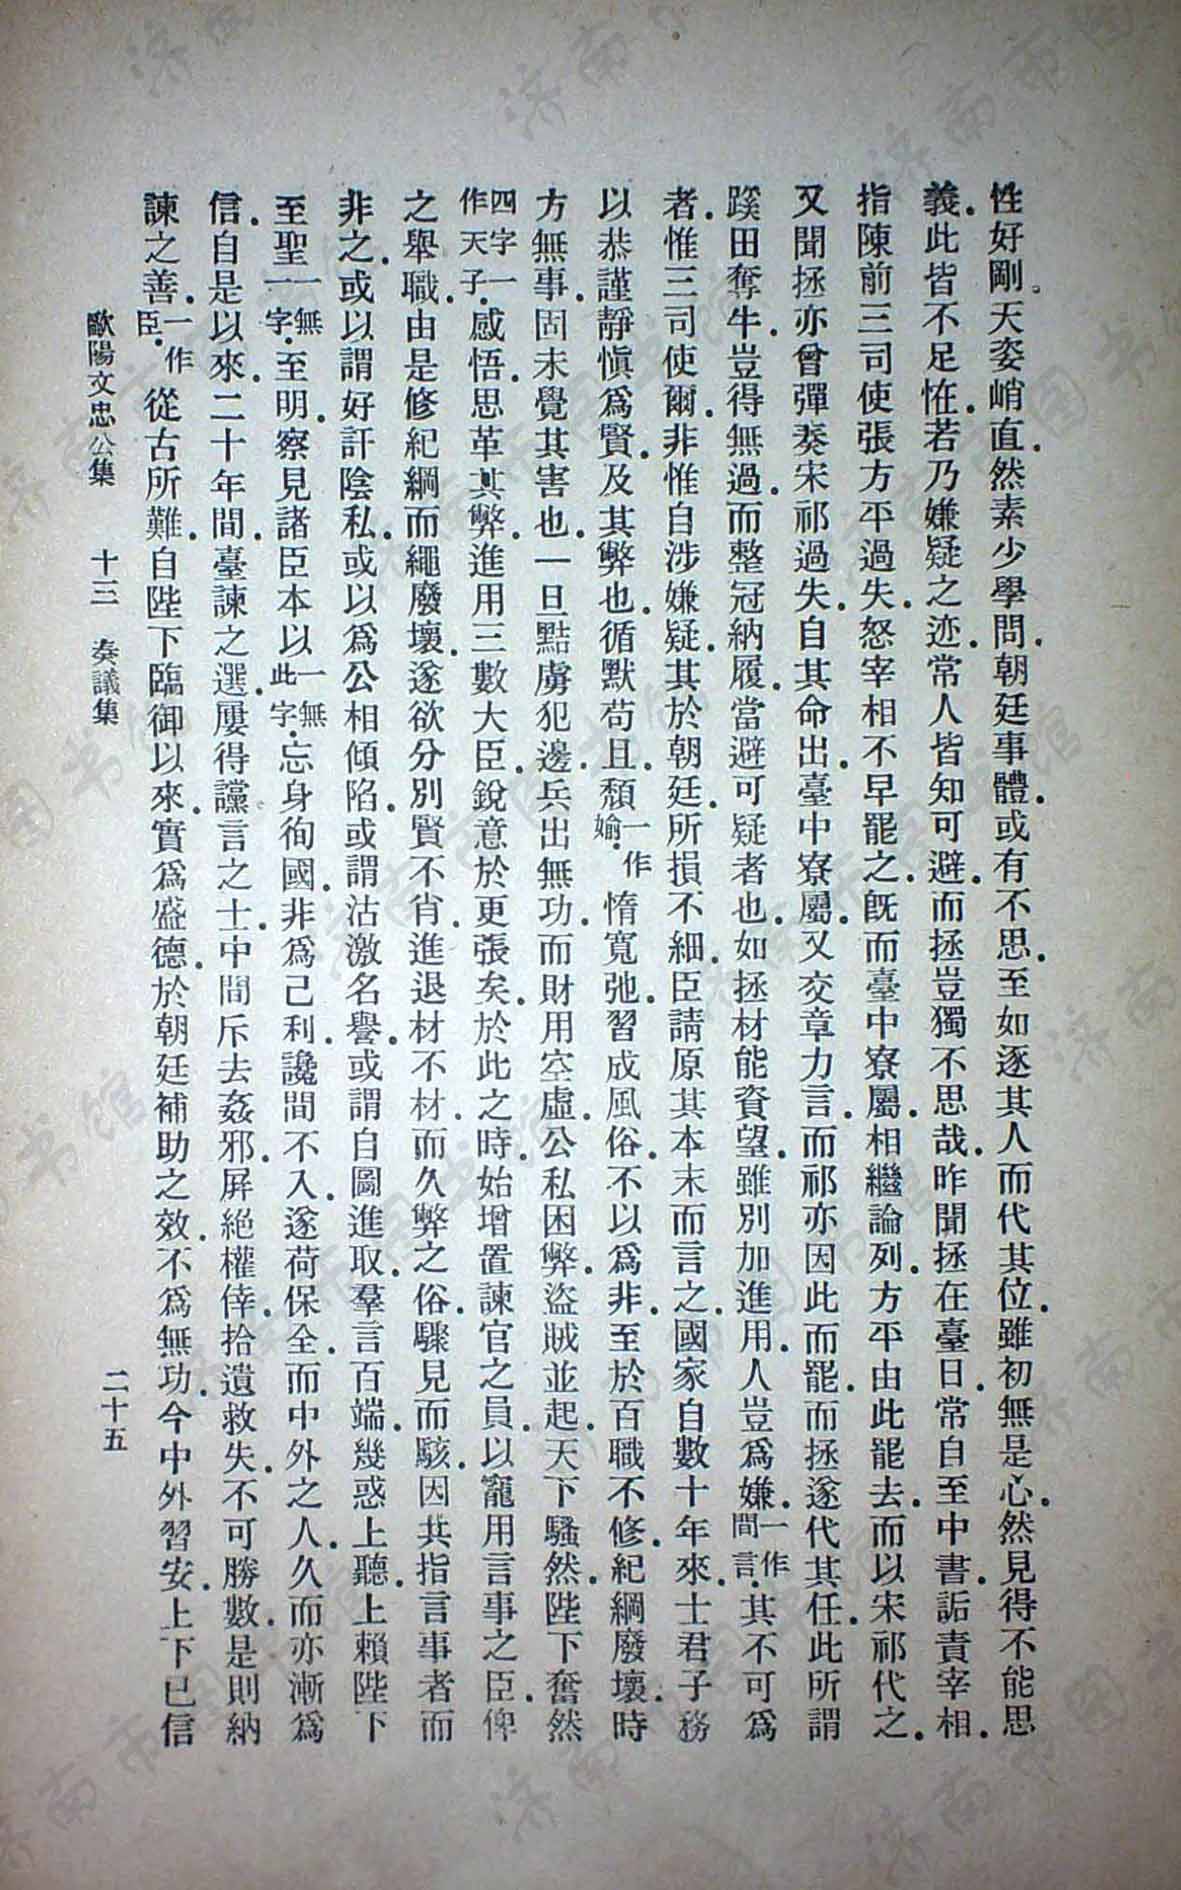 性好剛。天姿峭直。然素少學問。朝廷事體。或有不思。至如逐其人而代其位。雖初無是心。然見得不能思
義。此皆不足恠。若乃嫌疑之迹。常人皆知可避。而拯豈獨不思哉。昨聞拯在臺日。常自至中書。詬責宰相。
指陳前三司使張方平過失。怒宰相不早罷之。旣而臺中寮屬。相繼論列。方平由此罷去。而以宋祁代之。
又聞拯亦曾彈奏宋祁過失。自其命出。臺中寮屬。又交章力言。而祁亦因此而罷。而拯遂代其任。此所謂
蹊田奪牛。豈得無過。而整冠納履。當避可疑者也。如拯材能資望。雖別加進用。人豈爲嫌。一作間言。其不可爲
者。惟三司使爾。非惟自涉嫌疑。其於朝廷。所損不細。臣請原其本末而言之。國家自數十年來。士君子務
以恭謹靜愼爲賢。及其弊也。循默苟且。頹一作媮。惰寬弛。習成風俗。不以爲非。至於百職不修。紀綱廢壞。時
方無事。固未覺其害也。一旦黠虜犯邊。兵出無功。而財用空虛。公私困弊。盜賊並起。天下騷然。陛下奮然
四字一作天子。感悟。思革其弊。進用三數大臣。銳意於更張矣。於此之時。始增置諫官之員。以寵用言事之臣。俾
之舉職。由是修紀綱而繩廢壞。遂欲分別賢不肖。進退材不材。而久弊之俗。驟見而駭。因共指言事者而
非之。或以謂好訐陰私。或以爲公相傾陷。或謂沽激名譽。或謂自圖進取。羣言百端。幾惑上聽。上賴陛下
至聖一無一字。至明。察見諸臣本以一無此字。忘身徇國。非爲己利。讒間不入。遂荷保全。而中外之人。久而亦漸爲
信。自是以來。二十年間。臺諫之選。屢得讜言之士。中間斥去姦邪。屏絕權倖。拾遺救失。不可勝數。是則納
諫之善。一作臣。從古所難。自陛下臨御以來。實爲盛德。於朝廷補助之效。不爲無功。今中外習安。上下已信
歐陽文忠公集 十三 奏議集 二十五